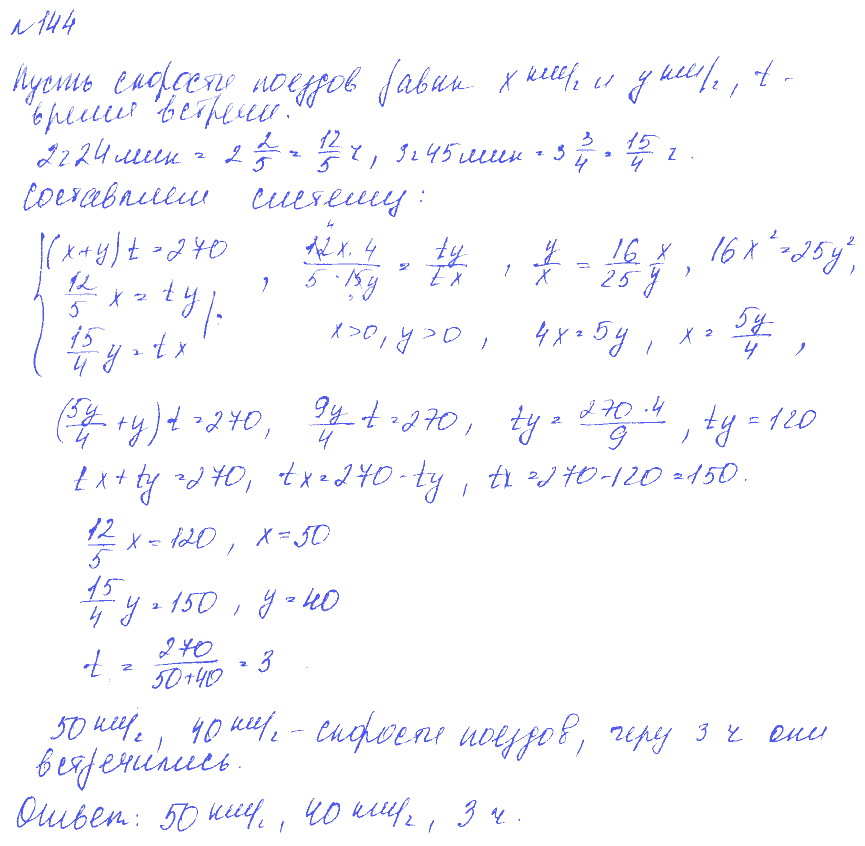 №144
Пусть скорости поездов равны x км/ч и y км/ч, t -
время встречи.
2ч 24 мин = 2 2/5 = 12/5 ч, 3ч 45 мин = 3 3/4 = 15/4 ч.
Составляем систему:
{ (x+y)t = 270
12/5 x = ty
15/4 y = tx
} :, 12x · 4 / 5 · 15y = ty/tx, y/x = 16/25 x/y, 16x² = 25y²,
x>0, y>0, 4x = 5y, x = 5y/4,
(5y/4 + y)t = 270, 9y/4 t = 270, ty = 270 · 4 / 9, ty = 120
tx + ty = 270, tx = 270 - ty, tx = 270 - 120 = 150.
12/5 x = 120, x = 50
15/4 y = 150, y = 40
t = 270 / 50+40 = 3
50 км/ч, 40 км/ч - скорости поездов, через 3 ч они
встретились.
Ответ: 50 км/ч, 40 км/ч, 3 ч.